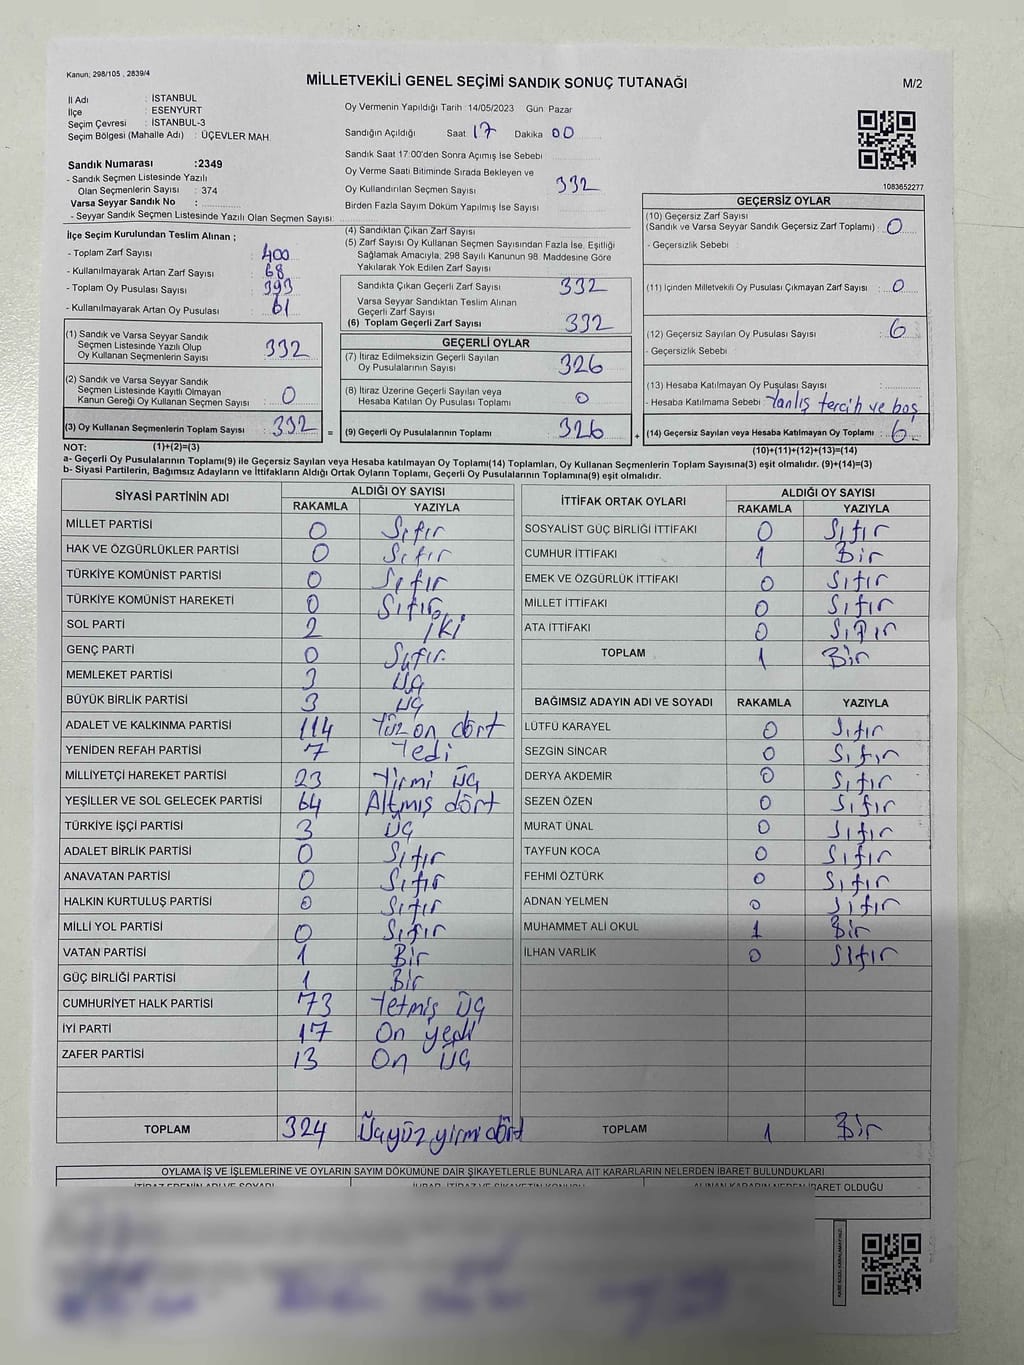 Kanun; 298/105 , 2839/4
MİLLETVEKİLİ GENEL SEÇİMİ SANDIK SONUÇ TUTANAĞI
M/2
İl Adı : İSTANBUL
İlçe : ESENYURT
Seçim Çevresi : İSTANBUL-3
Seçim Bölgesi (Mahalle Adı) : ÜÇEVLER MAH.
Sandık Numarası :2349
- Sandık Seçmen Listesinde Yazılı
Olan Seçmenlerin Sayısı : 374
Varsa Seyyar Sandık No :
- Seyyar Sandık Seçmen Listesinde Yazılı Olan Seçmen Sayısı:
Oy Vermenin Yapıldığı Tarih :14/05/2023 Gün: Pazar
Sandığın Açıldığı Saat 17 Dakika 00
Sandık Saat 17:00'den Sonra Açımış İse Sebebi
Oy Verme Saati Bitiminde Sırada Bekleyen ve
Oy Kullandırılan Seçmen Sayısı 332
Birden Fazla Sayım Döküm Yapılmış İse Sayısı
1083652277
İlçe Seçim Kurulundan Teslim Alınan ;
- Toplam Zarf Sayısı : 400
- Kullanılmayarak Artan Zarf Sayısı : 68
- Toplam Oy Pusulası Sayısı : 393
- Kullanılmayarak Artan Oy Pusulası : 61
(1) Sandık ve Varsa Seyyar Sandık
Seçmen Listesinde Yazılı Olup
Oy Kullanan Seçmenlerin Sayısı 332
(2) Sandık ve Varsa Seyyar Sandık
Seçmen Listesinde Kayıtlı Olmayan
Kanun Gereği Oy Kullanan Seçmen Sayısı : 0
(3) Oy Kullanan Seçmenlerin Toplam Sayısı : 332 =
(4) Sandıktan Çıkan Zarf Sayısı
(5) Zarf Sayısı Oy Kullanan Seçmen Sayısından Fazla İse, Eşitliği
Sağlamak Amacıyla, 298 Sayılı Kanunun 98. Maddesine Göre
Yakılarak Yok Edilen Zarf Sayısı
Sandıkta Çıkan Geçerli Zarf Sayısı 332
Varsa Seyyar Sandıktan Teslim Alınan
Geçerli Zarf Sayısı
(6) Toplam Geçerli Zarf Sayısı 332
GEÇERLİ OYLAR
(7) İtiraz Edilmeksizin Geçerli Sayılan
Oy Pusulalarının Sayısı 326
(8) İtiraz Üzerine Geçerli Sayılan veya
Hesaba Katılan Oy Pusulası Toplamı 0
(9) Geçerli Oy Pusulalarının Toplamı 326 +
GEÇERSİZ OYLAR
(10) Geçersiz Zarf Sayısı
(Sandık ve Varsa Seyyar Sandık Geçersiz Zarf Toplamı) : 0
- Geçersizlik Sebebi :
(11) İçinden Milletvekili Oy Pusulası Çıkmayan Zarf Sayısı : 0
(12) Geçersiz Sayılan Oy Pusulası Sayısı : 6
- Geçersizlik Sebebi :
(13) Hesaba Katılmayan Oy Pusulası Sayısı :
- Hesaba Katılmama Sebebi : Yanlış tercih ve boş
(14) Geçersiz Sayılan veya Hesaba Katılmayan Oy Toplamı : 6
NOT: (1)+(2)=(3)
(10)+(11)+(12)+(13)=(14)
a- Geçerli Oy Pusulalarının Toplamı(9) ile Geçersiz Sayılan veya Hesaba katılmayan Oy Toplamı(14) Toplamları, Oy Kullanan Seçmenlerin Toplam Sayısına(3) eşit olmalıdır. (9)+(14)=(3)
b- Siyasi Partilerin, Bağımsız Adayların ve İttifakların Aldığı Ortak Oyların Toplamı, Geçerli Oy Pusulalarının Toplamına(9) eşit olmalıdır.
SİYASİ PARTİNİN ADI ALDIĞI OY SAYISI
RAKAMLA YAZIYLA
MİLLET PARTİSİ 0 Sıfır
HAK VE ÖZGÜRLÜKLER PARTİSİ 0 Sıfır
TÜRKİYE KOMÜNİST PARTİSİ 0 Sıfır
TÜRKİYE KOMÜNİST HAREKETİ 0 Sıfır
SOL PARTİ 2 iki
GENÇ PARTİ 0 Sıfır
MEMLEKET PARTİSİ 3 üç
BÜYÜK BİRLİK PARTİSİ 3 üç
ADALET VE KALKINMA PARTİSİ 114 Yüz on dört
YENİDEN REFAH PARTİSİ 7 Yedi
MİLLİYETÇİ HAREKET PARTİSİ 23 Yirmi üç
YEŞİLLER VE SOL GELECEK PARTİSİ 64 Altmış dört
TÜRKİYE İŞÇİ PARTİSİ 3 üç
ADALET BİRLİK PARTİSİ 0 Sıfır
ANAVATAN PARTİSİ 0 Sıfır
HALKIN KURTULUŞ PARTİSİ 0 Sıfır
MİLLİ YOL PARTİSİ 0 Sıfır
VATAN PARTİSİ 1 Bir
GÜÇ BİRLİĞİ PARTİSİ 1 Bir
CUMHURİYET HALK PARTİSİ 73 Yetmiş üç
İYİ PARTİ 17 On yedi
ZAFER PARTİSİ 13 On üç
TOPLAM 324 Üçyüz yirmi dört
İTTİFAK ORTAK OYLARI ALDIĞI OY SAYISI
RAKAMLA YAZIYLA
SOSYALİST GÜÇ BİRLİĞİ İTTİFAKI 0 Sıfır
CUMHUR İTTİFAKI 1 Bir
EMEK VE ÖZGÜRLÜK İTTİFAKI 0 Sıfır
MİLLET İTTİFAKI 0 Sıfır
ATA İTTİFAKI 0 Sıfır
TOPLAM 1 Bir
BAĞIMSIZ ADAYIN ADI VE SOYADI RAKAMLA YAZIYLA
LÜTFÜ KARAYEL 0 Sıfır
SEZGİN SİNCAR 0 Sıfır
DERYA AKDEMİR 0 Sıfır
SEZEN ÖZEN 0 Sıfır
MURAT ÜNAL 0 Sıfır
TAYFUN KOCA 0 Sıfır
FEHMİ ÖZTÜRK 0 Sıfır
ADNAN YELMEN 0 Sıfır
MUHAMMET ALİ OKUL 1 Bir
İLHAN VARLIK 0 Sıfır
TOPLAM 1 Bir
OYLAMA İŞ VE İŞLEMLERİNE VE OYLARIN SAYIM DÖKÜMÜNE DAİR ŞİKAYETLERLE BUNLARA AİT KARARLARIN NELERDEN İBARET BULUNDUKLARI
İTİRAZ EDENİN ADI VE SOYADI
ALINAN KARARIN NEDEN İBARET OLDUĞU